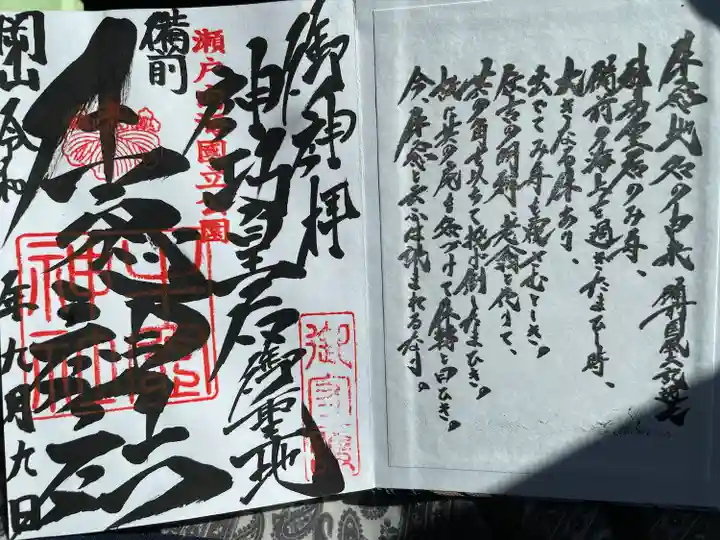 牛窓地名の由来
神功皇后のみ舟、
備前の海上を過ぎたまひし時、
大きなる牛あり、
出でてみ舟を覆さむとしき。
住吉の明神、老翁と化りて、
其の角を以ちて投げ倒したまひき。
故に其の処を名づけて牛轉と曰ひき。
今、牛窓と云ふは訛れるなり。
御神拝
神功皇后御聖地
瀬戸内海國立公園
備前
牛窓神社
牛窓神社
岡山 令和 年九月九日